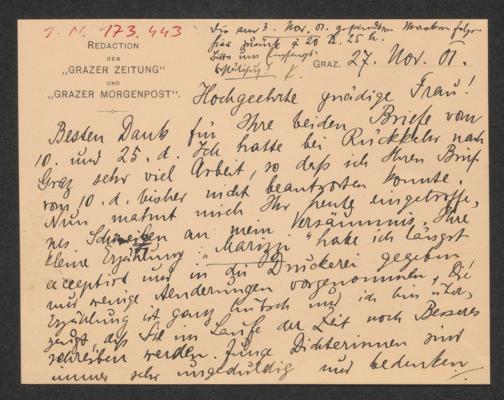 J. N. 173.443
Die am 3. Nov. 01. gesandten Marken folgen
hier zurück à 20 h. 25 h.
Bitte um Empfangs-
bestätigung!
REDACTION
DER
„GRAZER ZEITUNG"
UND
„GRAZER MORGENPOST".
GRAZ, 27. Nov. 01.
Hochgeehrte gnädige Frau!
Besten Dank für Ihre beiden Briefe vom
10. und 25. d. Ich hatte bei Rückkehr nach
Graz sehr viel Arbeit, so daß ich Ihren Brief
vom 10. d. bisher nicht beantworten konnte.
Nun mahnt mich Ihr heute eingetroffe-
nes Schreiben an mein Versäumnis. Ihre
kleine Erzählung „Marizza" habe ich längst
acceptirt und in die Druckerei gegeben
nur wenige Aenderungen vorgenommen. Die
Erzählung ist ganz hübsch und ich bin über-
zeugt, daß Sie im Laufe der Zeit noch Besseres
schreiben werden. Junge Dichterinnen sind
immer sehr ungeduldig und bedenken